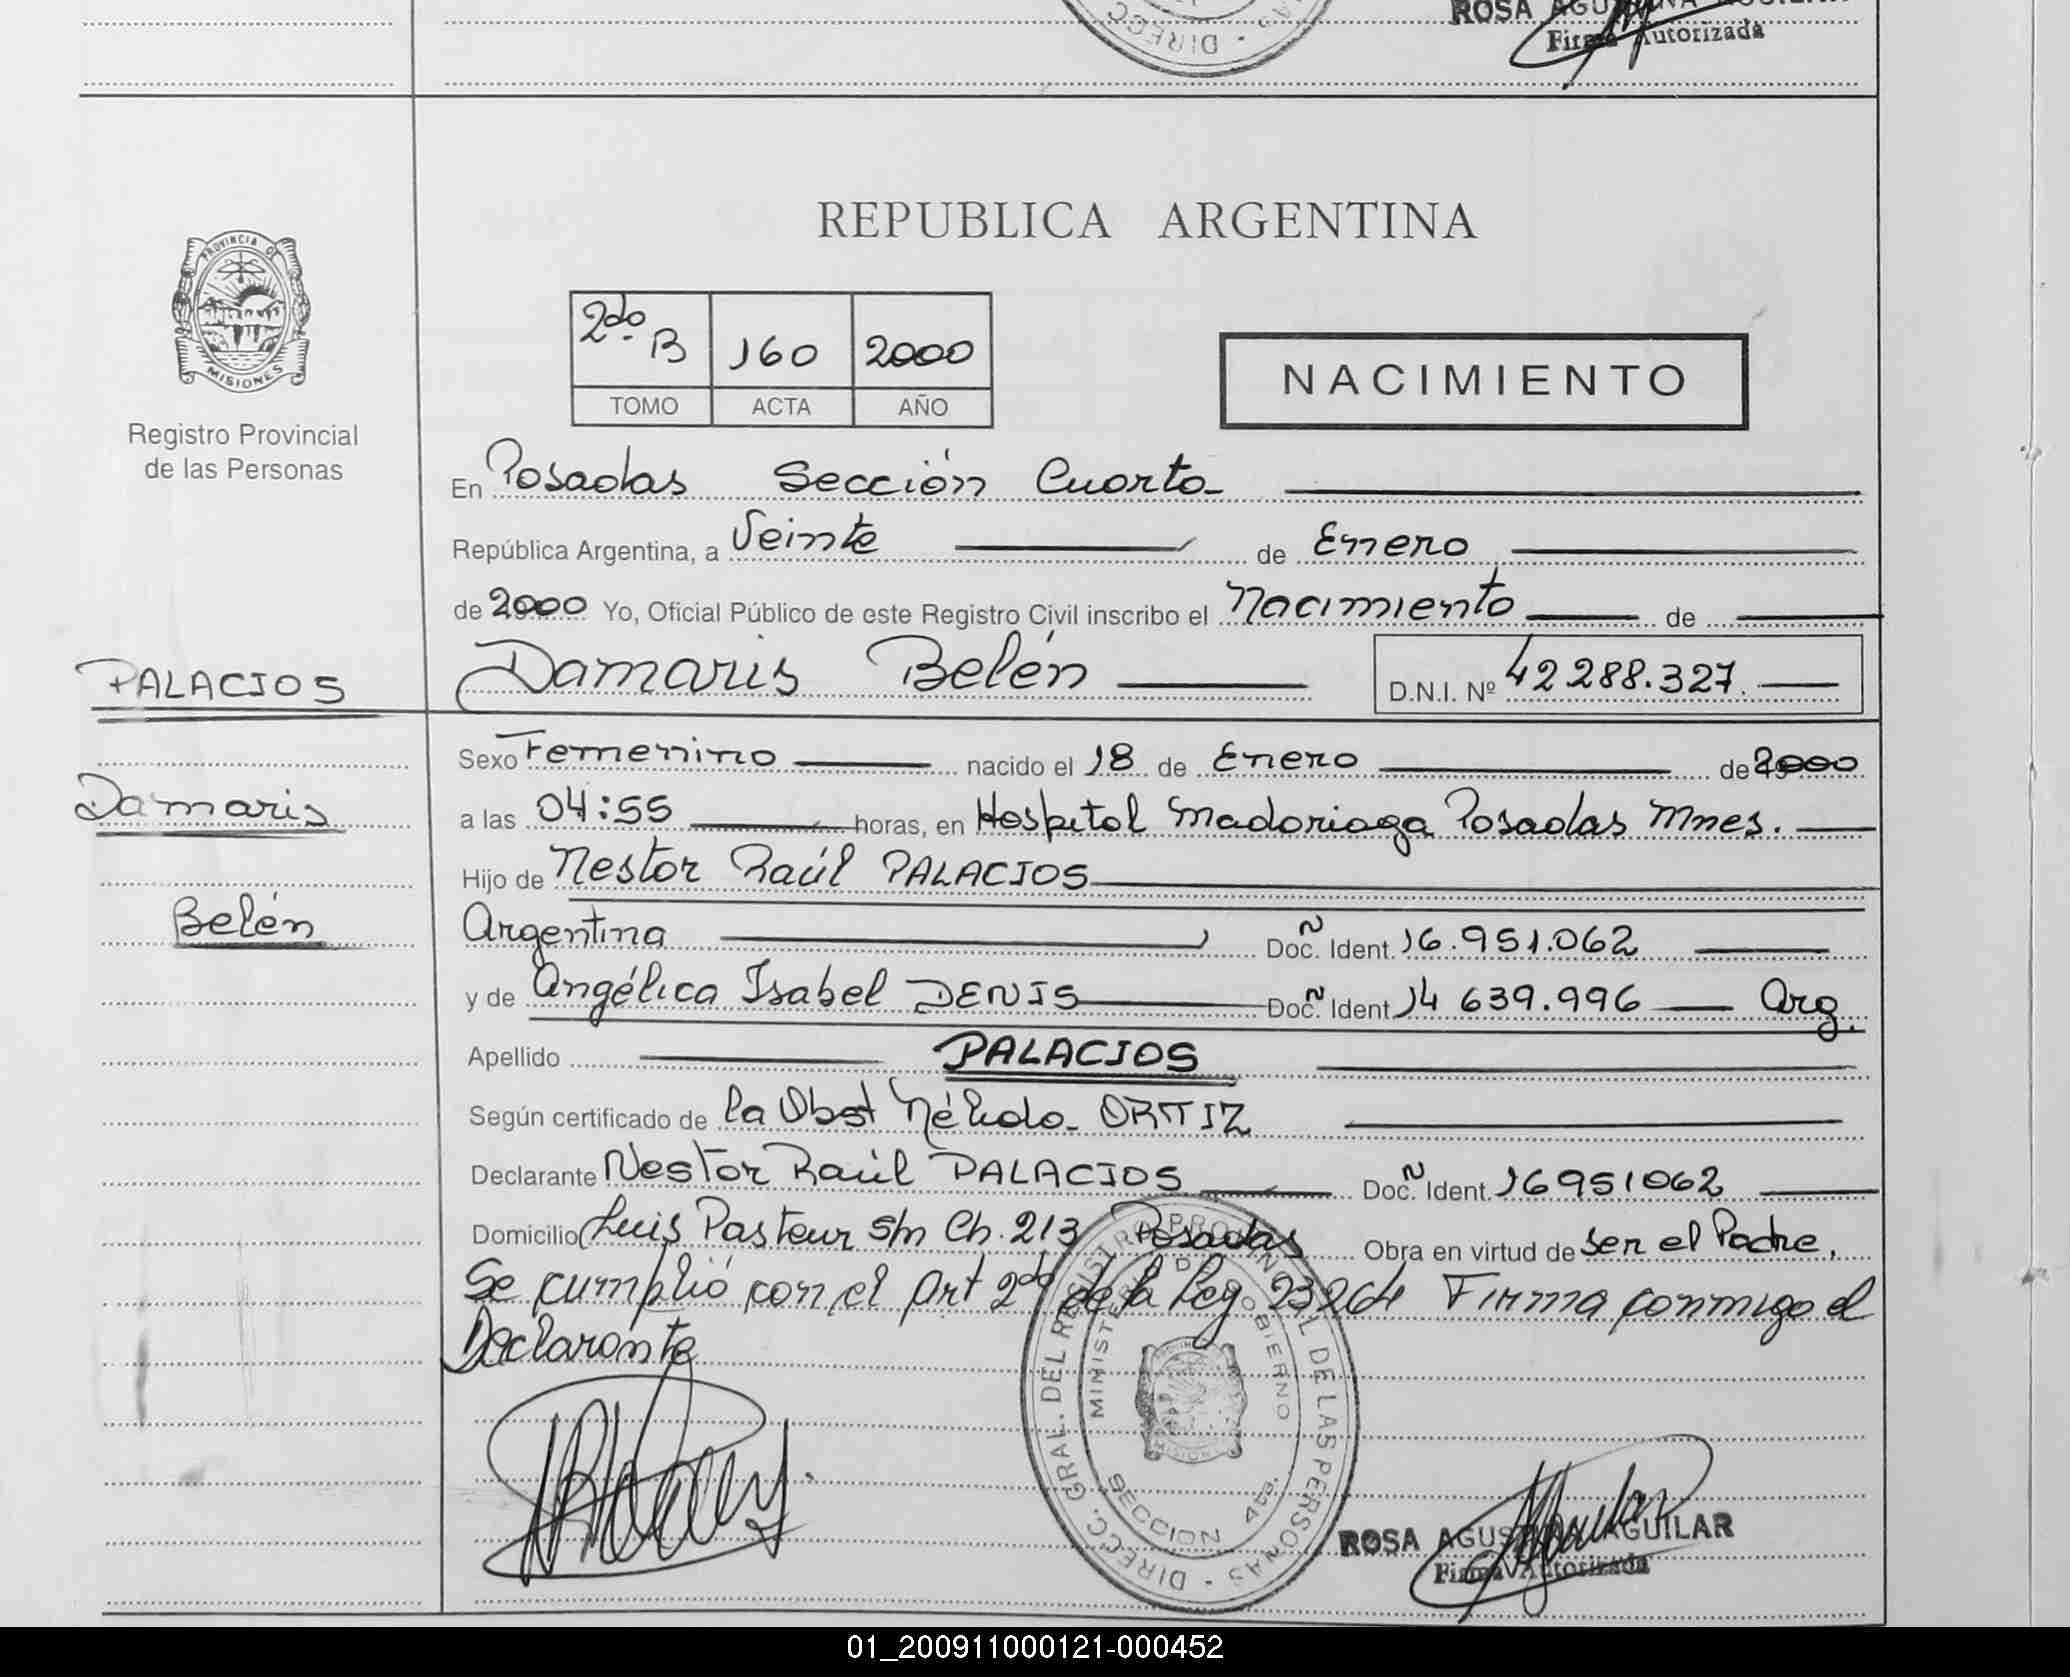 ROSA AGUSTINA AGUILAR
Firma Autorizada
DIRECC
REPUBLICA ARGENTINA
PROVINCIA DE
MISIONES
Registro Provincial
de las Personas
2do. B 160 2000
TOMO ACTA AÑO
NACIMIENTO
En Posadas Sección Cuarta
República Argentina, a Veinte de Enero
de 2000 Yo, Oficial Público de este Registro Civil inscribo el Nacimiento de
PALACIOS
Damaris Belén D.N.I. Nº 42288.327.
Sexo Femenino nacido el 18 de Enero de 2000
Damaris
a las 04:55 horas, en Hospital Madariaga Posadas Mnes.
Hijo de Nestor Raúl PALACIOS
Belén
Argentina Doc. Ident. 16.951.062
y de Angélica Isabel DENIS Doc. Ident. 14 639.996 Arg.
Apellido PALACIOS
Según certificado de la Obst Nélida ORTIZ
Declarante Nestor Raúl PALACIOS Doc. Ident. 16951062
Domicilio Luis Pasteur s/n Ch. 213 Posadas Obra en virtud de ser el Padre.
Se cumplió con el Art 2do de la Ley 23264 Firma conmigo el
Declarante
DIRECC. GRAL. DEL REGISTRO PROVINCIAL DE LAS PERSONAS
MINISTERIO DE GOBIERNO
SECCION 4ta.
ROSA AGUSTINA AGUILAR
Firma Autorizada
01_200911000121-000452